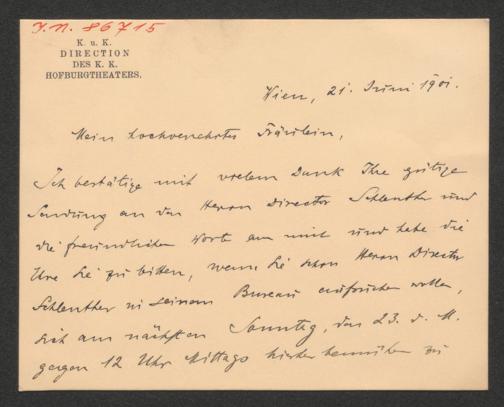 J.N. 86715
K. u. K.
DIRECTION
DES K. K.
HOFBURGTHEATERS.
Wien, 21. Juni 1901.
Mein hochverehrtes Fräulein,
Ich bestätige mit vielem Dank Ihre gütige
Sendung an den Herrn Director Schlenther und
die freundlichen Worte an mich und habe die
Ehre Sie zu bitten, wenn Sie schon Herrn Director
Schlenther in seinem Bureau aufsuchen wollen,
sich am nächsten Sonntag, den 23. d. M.
gegen 12 Uhr Mittags hierher bemühen zu